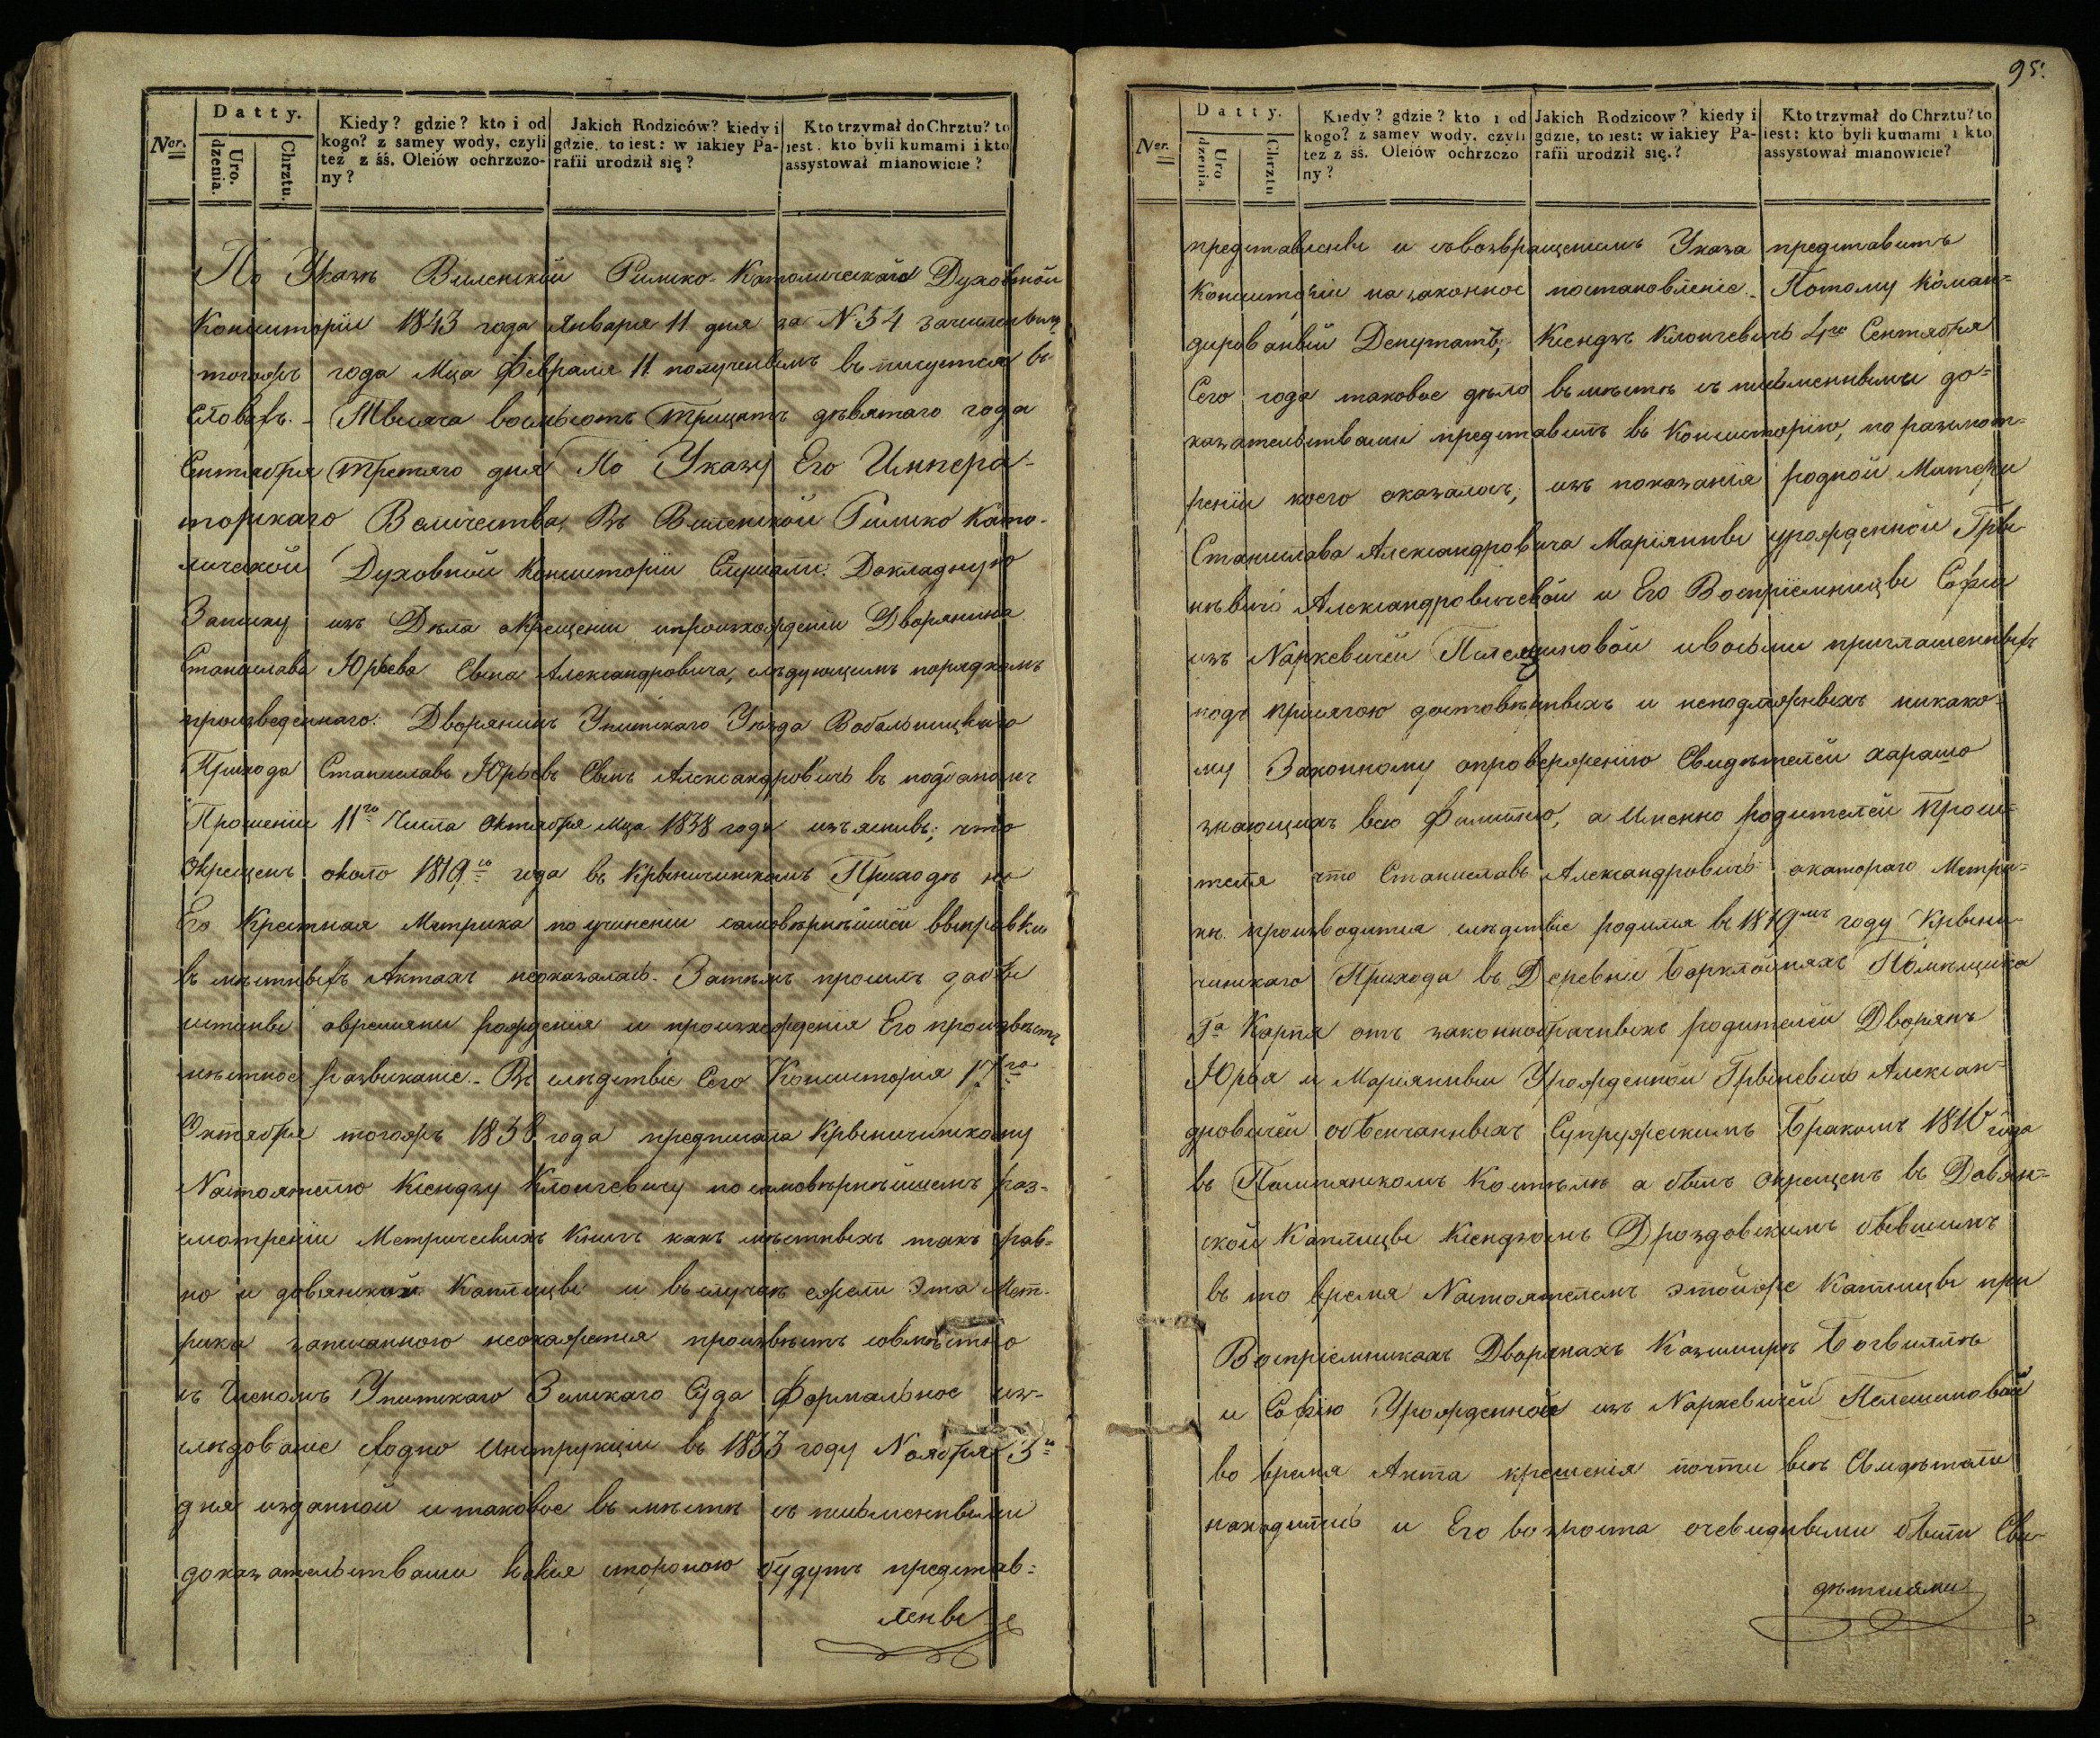 95.
Ner.
Datty.
Uro.
dzenia.
Chrztu.
Kiedy? gdzie? kto i od
kogo? z samey wody, czyli
tez z śś. Oleiów ochrzczo-
ny?
Jakich Rodziców? kiedy i
gdzie, to iest: w iakiey Pa-
rafii urodził się?
Kto trzymał do Chrztu? to
iest: kto byli kumami i kto
assystował mianowicie?
По Указѣ Виленской Римско-Католическаго Духовной
Консисторіи 1843 года Января 11 дня за N 54
тогожъ года Мца Февраля 11 полученнымъ въписуется въ
словахъ. - Тысяча восмьсотъ тридцать девятаго года
Сентября третяго дня По Указу Его Импера-
торскаго Величества, Въ Виленской Римско Като-
лической Духовной Консисторіи Слушали: Докладную
Записку изъ Дѣла окрещеніи ипроизхожденіи Дворянина
Станислава Юрьева Сына Александровича, слѣдующимъ порядкомъ
произведеннаго: Дворянинъ Упитскаго Уѣзда Вобольницкаго
Прихода Станиславъ Юрьевъ Сынъ Александровичь въ поданомъ
Прошеніи 11го Числа Октября Мца 1838 года изъяснивъ; что
окрещенъ около 1819го года въ Крыничинскомъ Приходѣ но
Его Крестная Метрика по учиненіи самовѣрнѣйшей выправки
въ мѣстныхъ Актахъ неоказалась. Затѣмъ просилъ дабы
истины овремяни рожденія и произхожденія Его произвѣсть
мѣстное розысканіе. - Въ слѣдствіе Сего Консисторія 17го
Октября тогожъ 1838 года предписала Крыничинскому
Настоятелю Ксендзу Клонгевичу по самовѣрнѣйшемъ раз-
смотреніи Метрическихъ Книгъ какъ мѣстныхъ такъ рав-
но и довянской Каплицы и въ случаѣ ежели эта Мет-
рика записанною неокажется произвѣсть совмѣстно
съ Членомъ Упитскаго Земскаго Суда Формальное из-
слѣдованіе сходно Инструкціи въ 1833 году Ноября 3го
дня изданной и таковое въ мѣстѣ съ письменными
доказательствами какія стороною будутъ представ-
лены
Ner.
Datty.
Uro
dzenia.
Chrztu
Kiedy? gdzie? kto i od
kogo? z samey wody, czyli
tez z śś. Oleiów ochrzczo
ny?
Jakich Rodzicow? kiedy i
gdzie, to iest: w iakiey Pa-
rafii urodził się.?
Kto trzymał do Chrztu? to
iest: kto byli kumami i kto
assystował mianowicie?
представлены и съвозвращеніемъ Указа представить
Консисторіи на законное постановленіе. Потому Коман-
дированый Депутатъ, Ксендзъ Клонгевичь 4го Сентября
Сего года таковое дѣло въ мѣстѣ съ письменными до-
казательствами представилъ въ Консисторію, по разсмот-
реніи коего оказалось, изъ показанія родной Матери
Станислава Александровича Маріянны урожденной Гры-
нѣвичь Александровичевой и Его Воспріемницы Софіи
изъ Наркевичей Пылешиновой ивосьми приглашенныхъ
подъ присягою достовѣрныхъ и неподлежныхъ никако-
му Законному опроверженію Свидѣтелей харашо
знающихъ всю Фамилію, а Именно родителей Проси-
теля что Станиславъ Александровичъ окатораго Метри-
кѣ производится слѣдствіе родился въ 1819мъ году Крыни-
чинскаго Прихода въ Деревни Борклойняхъ Помѣщика
Га Карпя отъ законнобрачныхъ родителей Дворянъ
Юрья и Маріянны Урожденной Грыневичь Александ-
ровичей обвенчанныхъ Супружескимъ Бракомъ 1816 года
въ Помпянскомъ Костѣлѣ а былъ Окрещенъ въ Довян-
ской Каплицы Ксендзомъ Дроздовскимъ бывшимъ
въ то время Настоятелемъ этойже Каплицы при
Воспріемникахъ Дворянахъ Казимирѣ
и Софію Урожденной изъ Наркевичей Пелешиновой
во время Акта крещенія почти всѣ Свидѣтели
находились и Его возроста очевидными были Сви-
дѣтелями